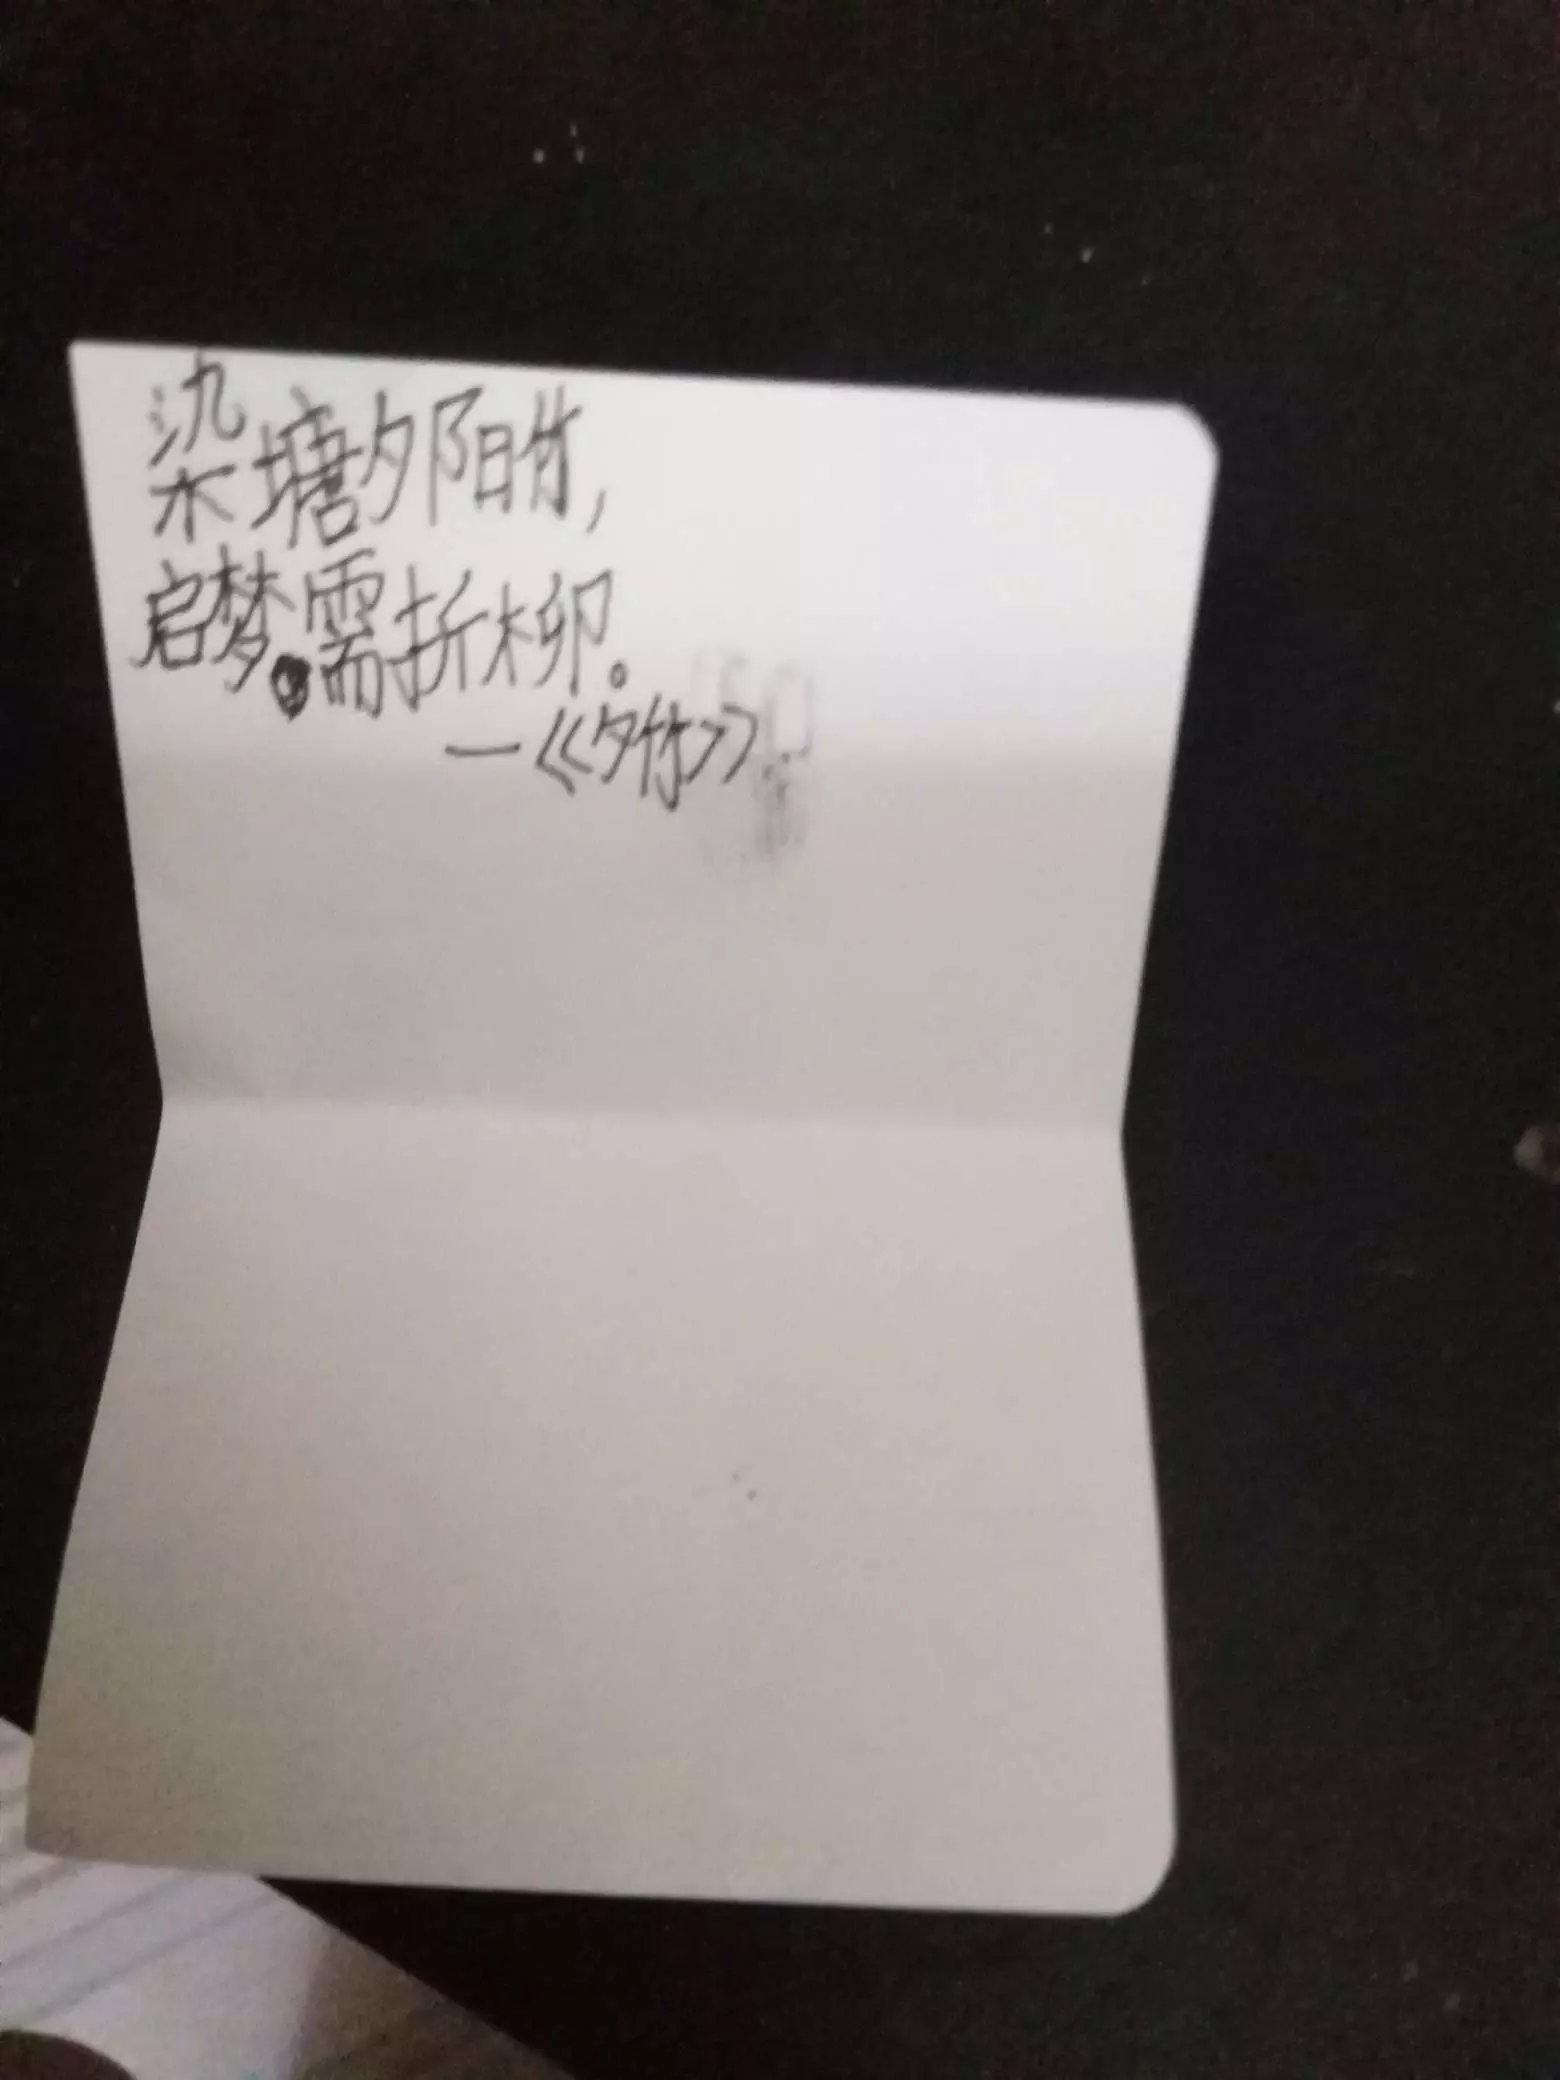 染塘夕阳竹,
启梦需折柳。
—《夕竹》